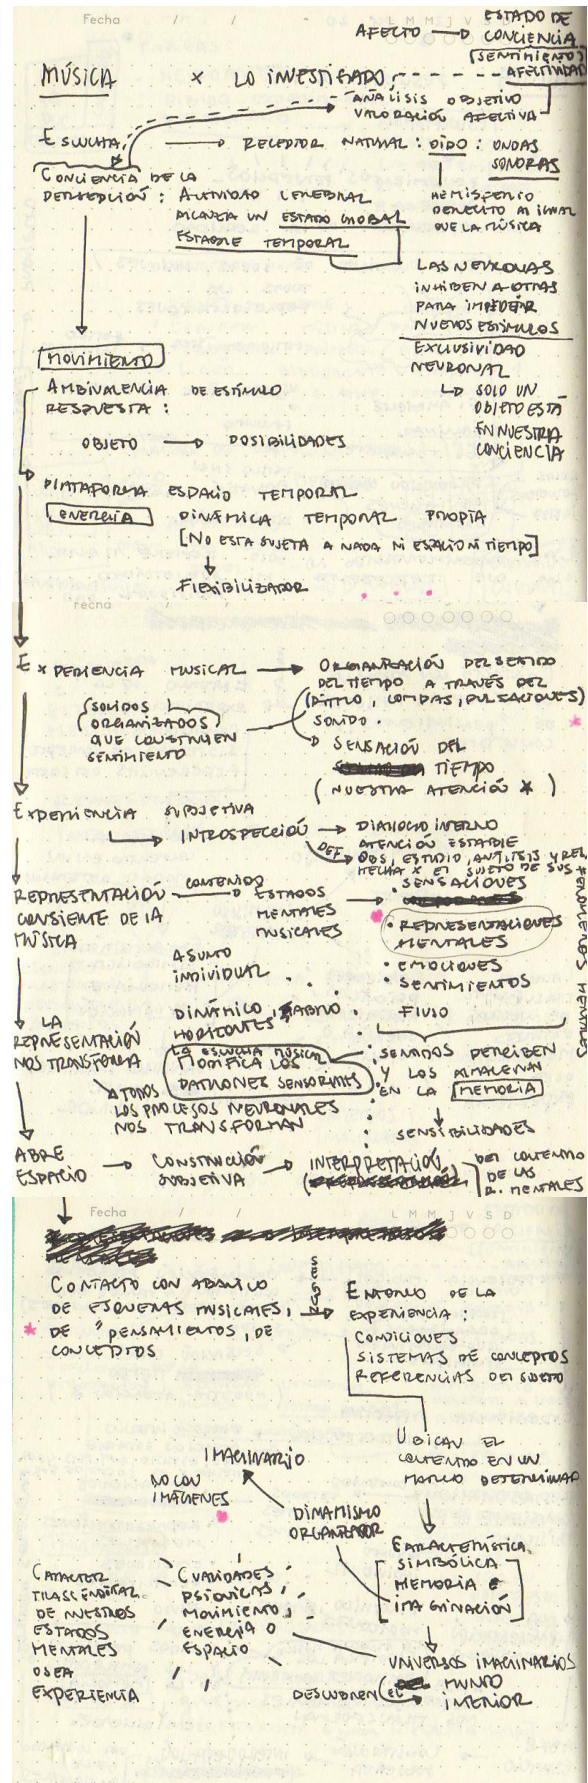 Fecha / / L M M J V S D
AFECTO → ESTADO DE
CONCIENCIA
(SENTIMIENTO)
AFECTIVIDAD
MÚSICA x LO INVESTIGADO,
ANÁLISIS OBJETIVO
VALORACIÓN AFECTIVA
ESCUCHA, → RECEPTOR NATURAL: OÍDO: ONDAS
SONORAS
CONCIENCIA DE LA
PERSEPCIÓN: ACTIVIDAD CEREBRAL
ALCANZA UN ESTADO GLOBAL
ESTABLE TEMPORAL
HEMISFERIO
DERECHO AL IGUAL
QUE LA MÚSICA
LAS NEURONAS
INHIBEN A OTRAS
PARA IMPEDIR
NUEVOS ESTÍMULOS
EXCLUSIVIDAD
NEURONAL
↳ SOLO UN
OBJETO ESTÁ
EN NUESTRA
CONCIENCIA
MOVIMIENTO
AMBIVALENCIA DE ESTÍMULO
RESPUESTA:
OBJETO → POSIBILIDADES
PLATAFORMA ESPACIO TEMPORAL
ENERGÍA DINÁMICA TEMPORAL PROPIA
[NO ESTA SUJETA A NADA NI ESPACIO NI TIEMPO]
↓
FLEXIBILIZADOR
Fecha / /
EXPERIENCIA MUSICAL → ORGANIZACIÓN DEL SENTIDO
DEL TIEMPO A TRAVÉS DEL
(RITMO, COMPAS, PULSACIONES)
SONIDO
(SONIDOS
ORGANIZADOS)
QUE CONSTRUYEN
SENTIMIENTO
SENSACIÓN DEL
TIEMPO
(NUESTRA ATENCIÓN *)
EXPERIENCIA SUBJETIVA
↳ INTROSPECCIÓN → DIALOGO INTERNO
ATENCIÓN ESTABLE
DEF → OBS, ESTUDIO, ANÁLISIS Y REL
HECHA X EL SUJETO DE SUS
FENÓMENOS MENTALES
REPRESENTACIÓN
CONSIENTE DE LA
MÚSICA
CONTENIDO → ESTADOS
MENTALES
MUSICALES
• SENSACIONES
• REPRESENTACIONES
MENTALES
• EMOCIONES
• SENTIMIENTOS
• FLUJO
ASUNTO
INDIVIDUAL
DINÁMICO,
HORIZONTES,
LA
REPRESENTACIÓN
NOS TRANSFORMA
LA ESCUCHA MUSICAL
MODIFICA LOS
PATRONES SENSORIALES
A TODOS
LOS PROCESOS NEURONALES
NOS TRANSFORMAN
SENTIDOS PERCIBEN
Y LOS ALMACENAN
EN LA MEMORIA
↓
SENSIBILIDADES
ABRE
ESPACIO → CONSTRUCCIÓN
SUBJETIVA → INTERPRETACIÓN
DEL CONTENIDO
DE LAS
R. MENTALES
Fecha / / L M M J V S D
CONTACTO CON ABANICO
DE ESQUEMAS MUSICALES,
* DE "PENSAMIENTOS, DE
CONCEPTOS
SEGÚN
ENTORNO DE LA
EXPERIENCIA:
CONDICIONES
SISTEMAS DE CONCEPTOS
REFERENCIAS DEL SUJETO
UBICAN EL
CONTENIDO EN UN
MARCO DETERMINAR
IMAGINARIO
NO CON
IMÁGENES
DINAMISMO
ORGANIZADOR
CARACTERÍSTICA
SIMBÓLICA
MEMORIA E
IMAGINACIÓN
CARACTER
TRASCENDITAL
DE NUESTROS
ESTADOS
MENTALES
OSEA
EXPERIENCIA
CUALIDADES
PSIQUICAS,
MOVIMIENTO,
ENERGÍA O
ESPACIO
UNIVERSOS IMAGINARIOS
DESCUBREN (EL MUNDO
INTERIOR